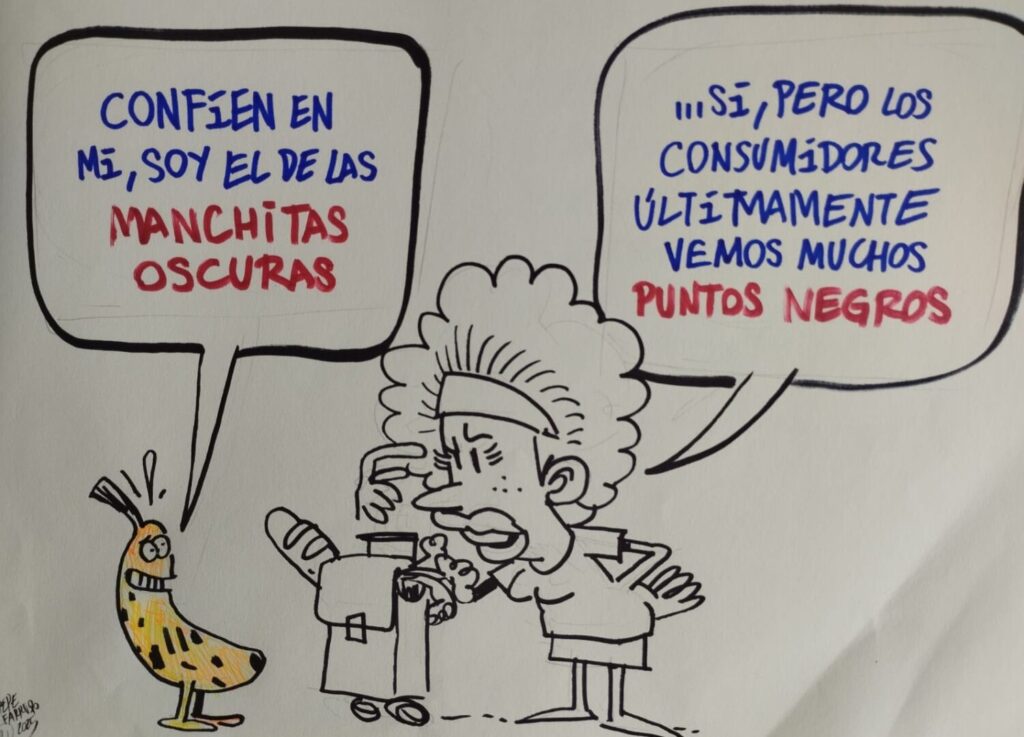 CONFÍEN EN
MÍ, SOY EL DE LAS
MANCHITAS
OSCURAS
...SÍ, PERO LOS
CONSUMIDORES
ÚLTIMAMENTE
VEMOS MUCHOS
PUNTOS NEGROS
PEPE
FARRUQO
2025